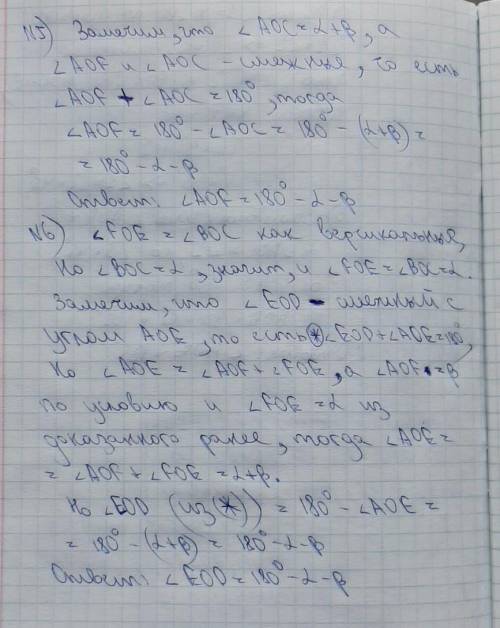 N5) Замечим, что ∠AOC = α+β, а
∠AOF и ∠AOC - смежные, то есть
∠AOF + ∠AOC = 180°, тогда
∠AOF = 180° - ∠AOC = 180° - (α+β) =
= 180° - α - β
Ответ: ∠AOF = 180° - α - β
N6) ∠FOE = ∠BOC как вертикальные,
но ∠BOC = α, значит, и ∠FOE = ∠BOC = α.
Заметим, что ∠EOD - смежный с
углом AOE, то есть (*) ∠EOD + ∠AOE = 180°,
Но ∠AOE = ∠AOF + ∠FOE, а ∠AOF = β
по условию и ∠FOE = α из
доказанного ранее, тогда ∠AOE =
= ∠AOF + ∠FOE = α+β.
Но ∠EOD (из (*)) = 180° - ∠AOE =
= 180° - (α+β) = 180° - α - β
Ответ: ∠EOD = 180° - α - β